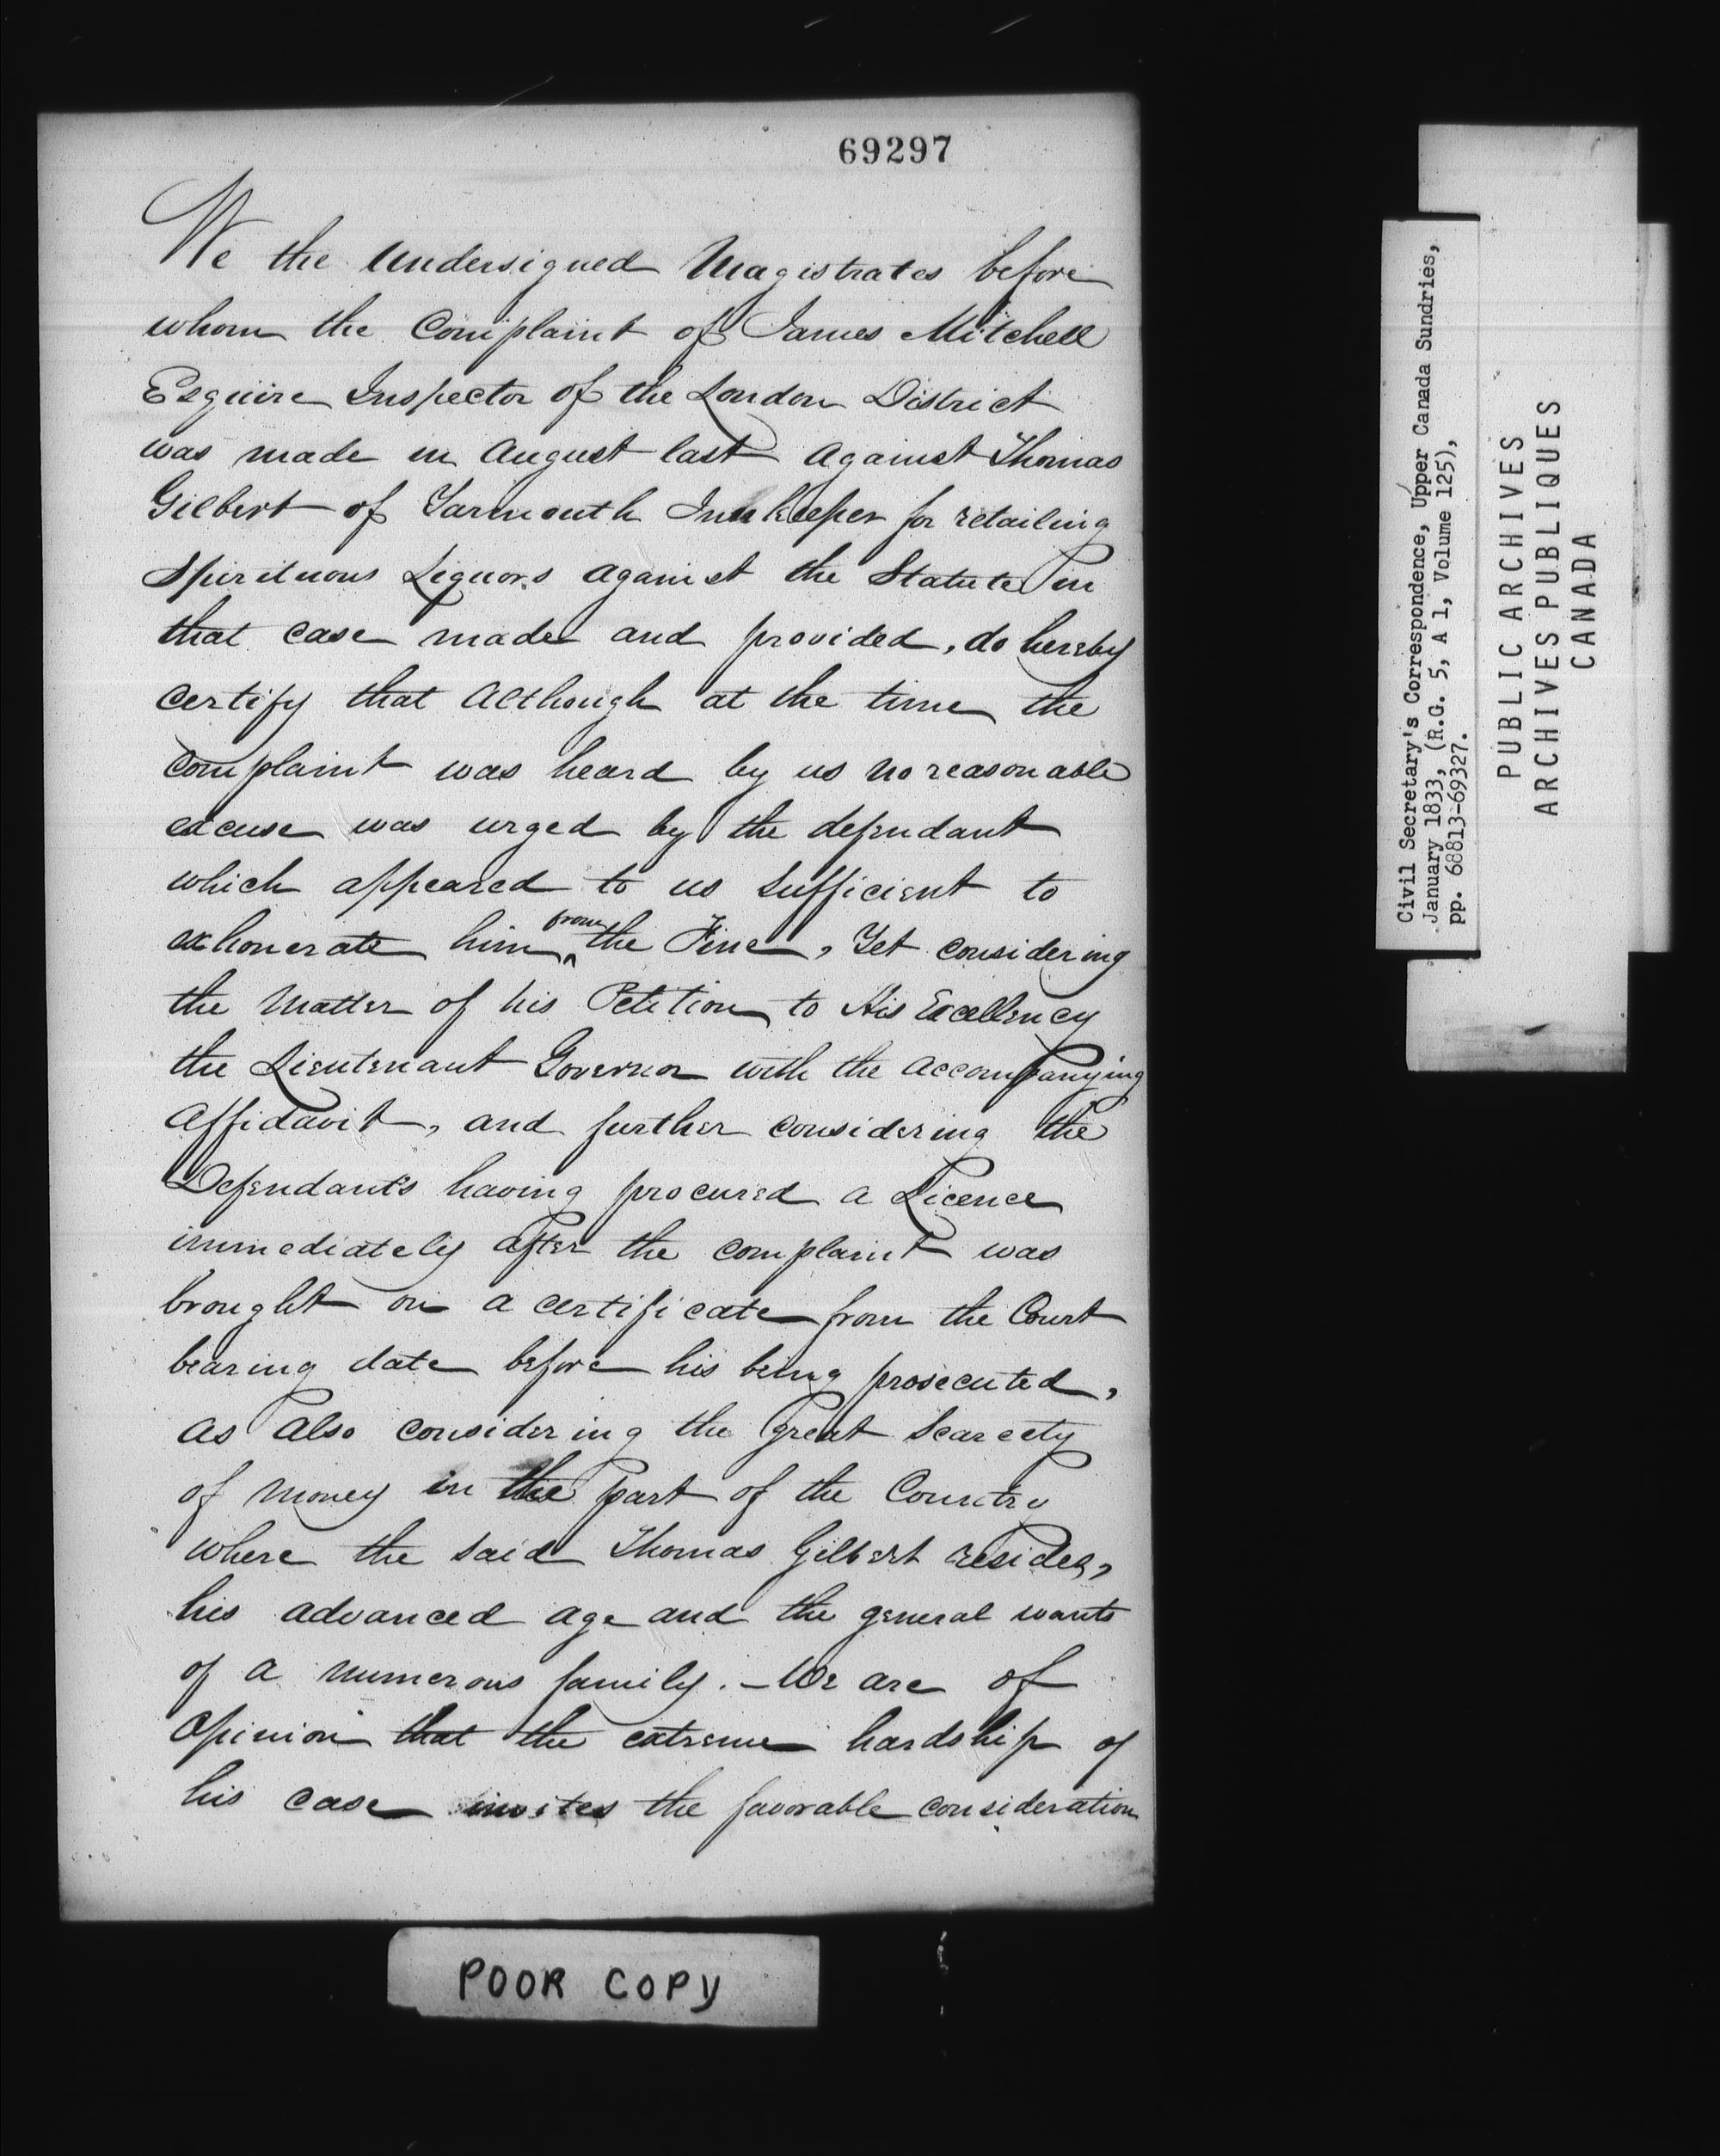 69297
We the undersigned Magistrates before
whom the Complaint of James Mitchell
Esquire Inspector of the London District
was made in August last against Thomas
Gilbert of Yarmouth Innkeeper for retailing
Spirituous Liquors against the Statute in
that case made and provided, do hereby
certify that although at the time the
complaint was heard by us no reasonable
excuse was urged by the defendant
which appeared to us sufficient to
exhonerate him from the Fine, Yet considering
the matter of his Petition to His Excellency
the Lieutenant Governor with the accompanying
affidavit, and further considering the
Defendants having procured a Licence
immediately after the complaint was
brought on a certificate from the Court
bearing date before his being prosecuted,
as also considering the great scarcety
of money in the part of the Country
where the said Thomas Gilbert resides,
his advanced age and the general wants
of a numerous family. - We are of
opinion that the extreme hardship of
his case invites the favorable consideration
POOR COPY
Civil Secretary's Correspondence, Upper Canada Sundries,
January 1833, (R.G. 5, A 1, Volume 125),
pp. 68813-69327.
PUBLIC ARCHIVES
ARCHIVES PUBLIQUES
CANADA